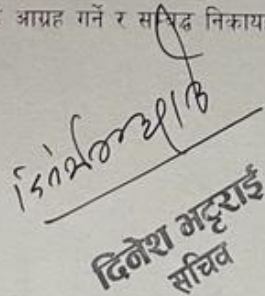 आग्रह गर्ने र सम्बद्ध निकाय
दिनेश भट्टराई
सचिव